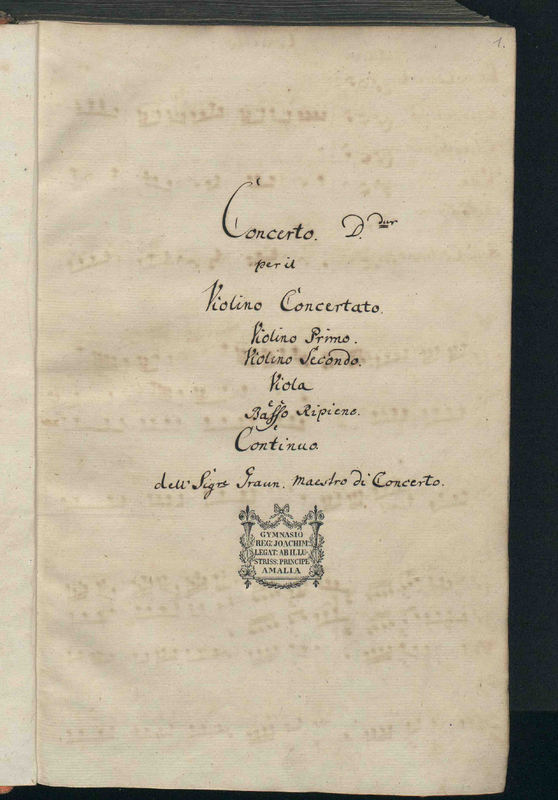 1.
Concerto. D. dur
per il
Violino Concertato.
Violino Primo.
Violino Secondo.
Viola
Basso Ripieno.
e
Continuo.
dell' Sigre Graun. Maestro di Concerto.
GYMNASIO
REG: JOACHIM:
LEGAT: AB ILLU-
STRISS: PRINCIPE
AMALIA